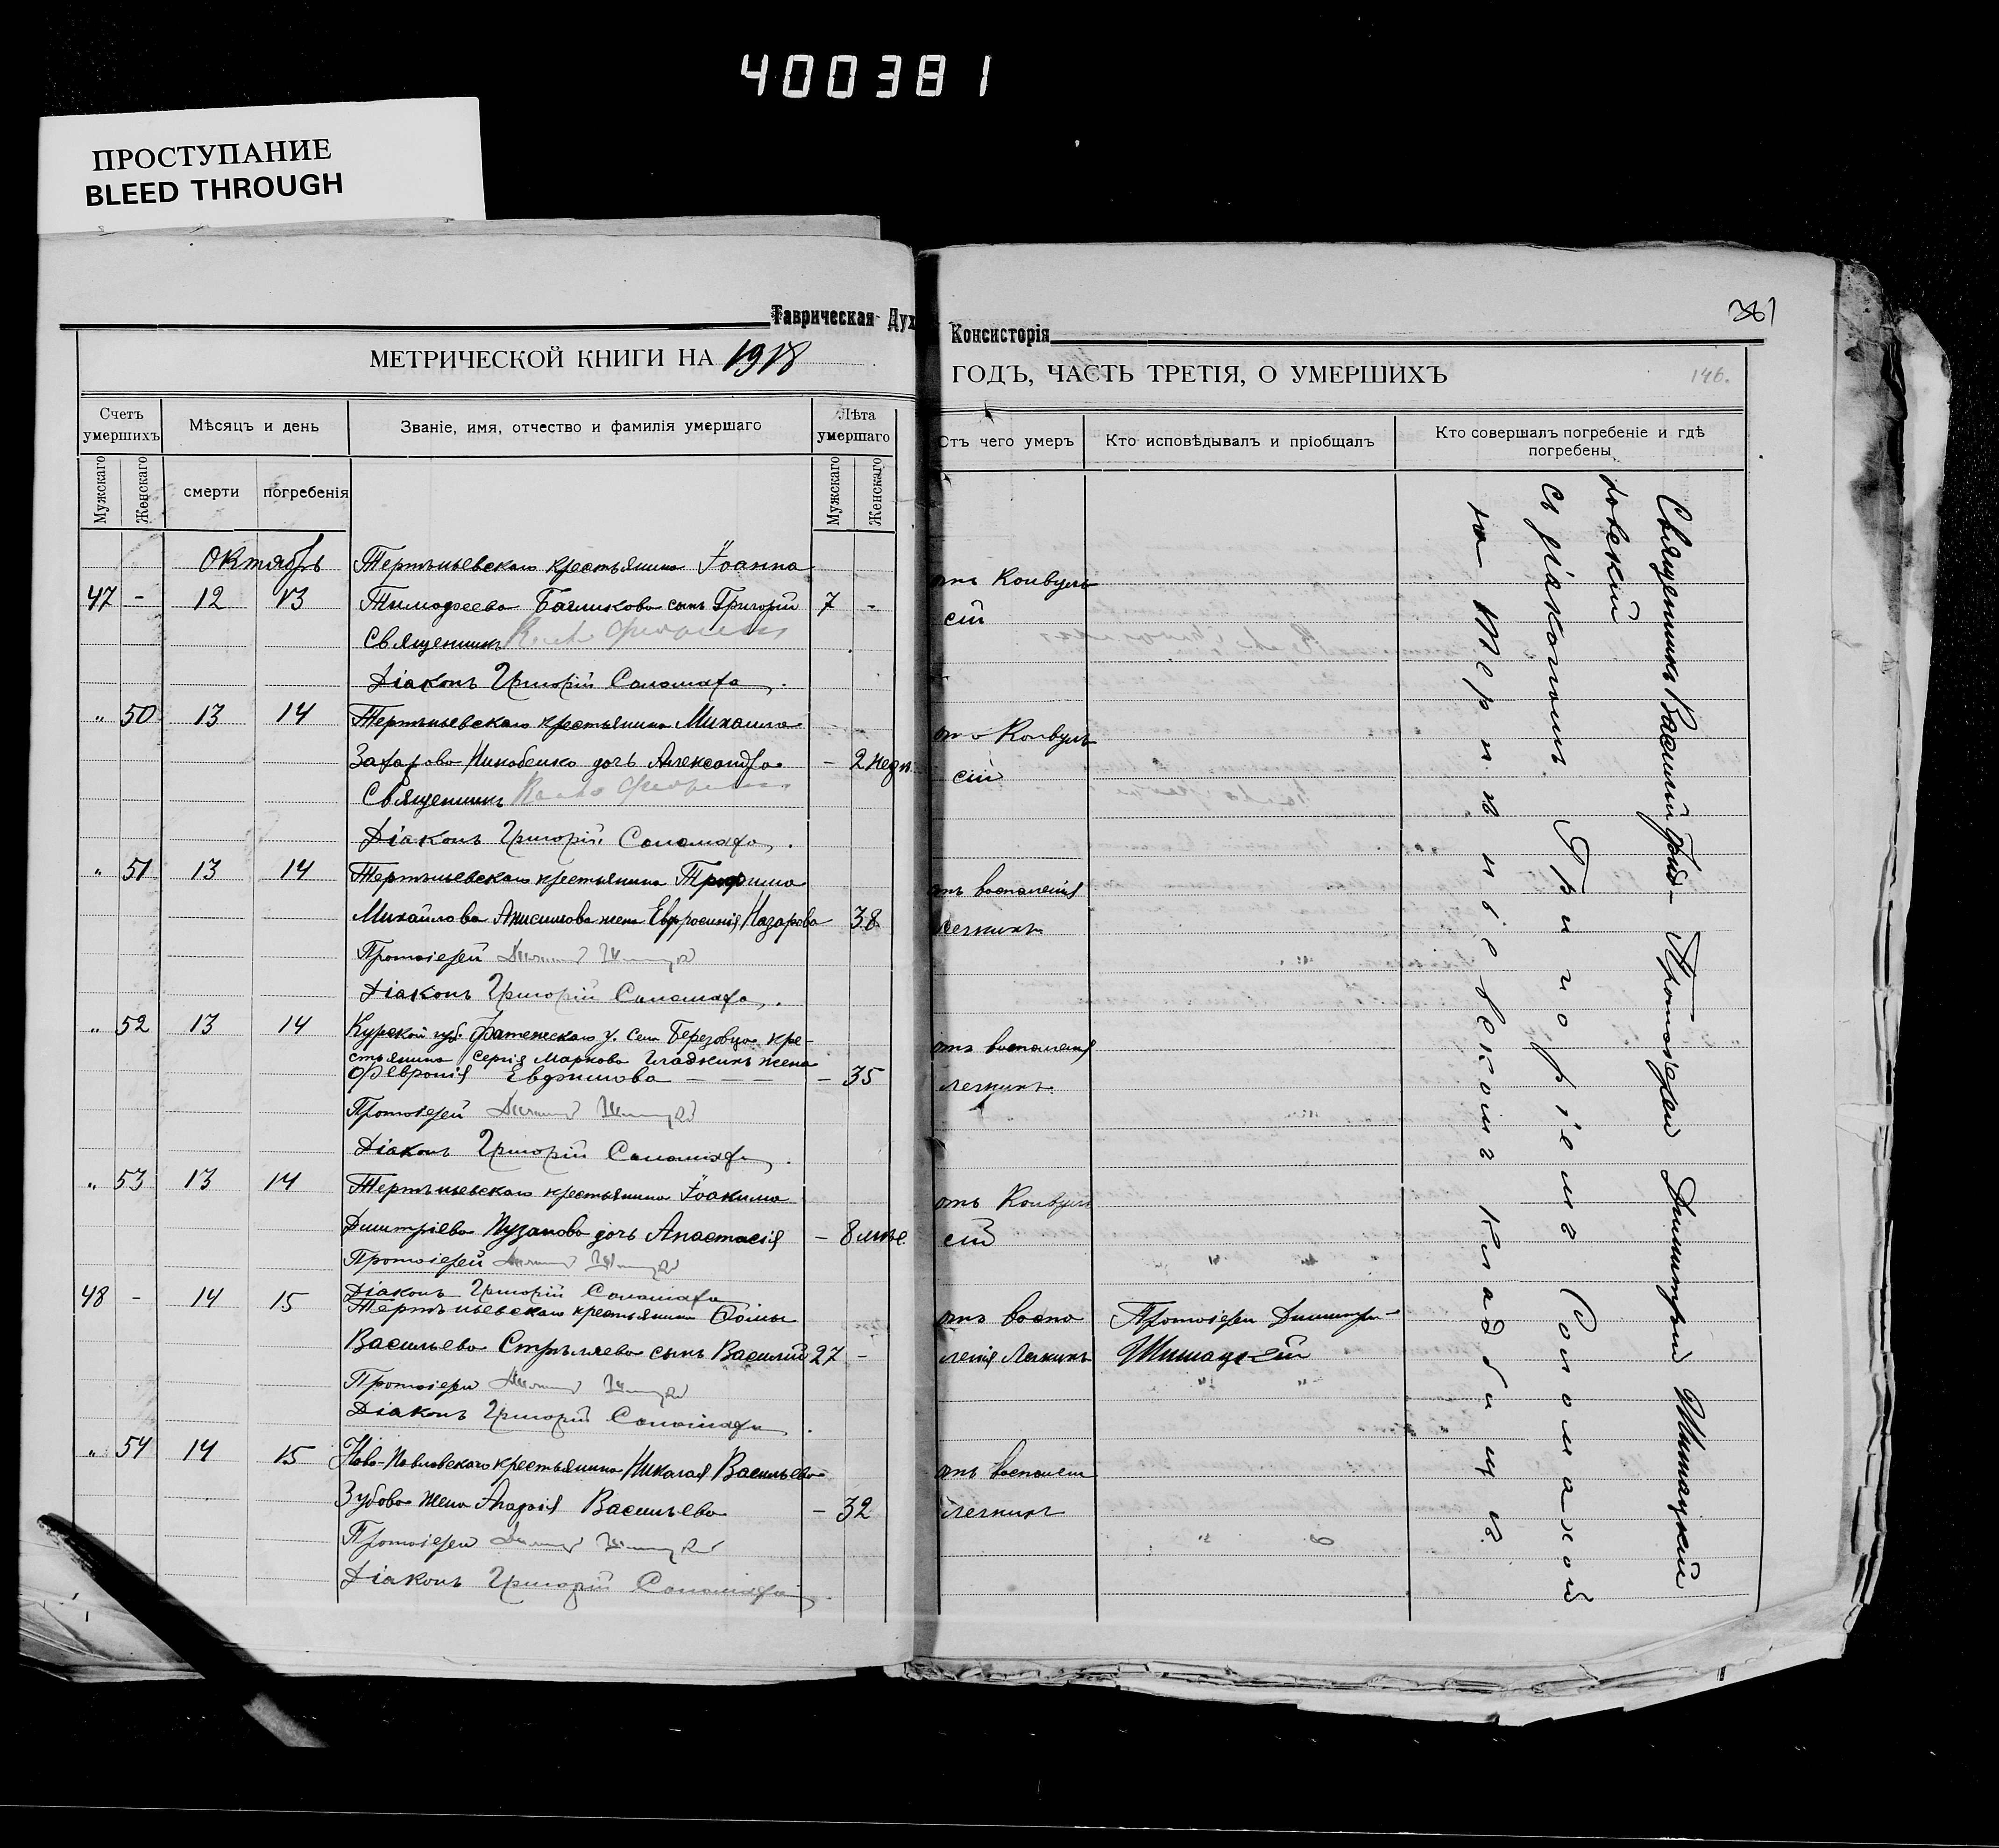 400381
ПРОСТУПАНИЕ
BLEED THROUGH
Таврическая Дух
МЕТРИЧЕСКОЙ КНИГИ НА 1918
Счетъ умершихъ
Мужскаго
Женскаго
Мѣсяцъ и день
смерти
погребенія
Званіе, имя, отчество и фамилія умершаго
Лѣта умершаго
Мужскаго
Женскаго
Октябрь Тертьньевскаго крестьянина Іоанна
47 - 12 13 Тимофеева сынъ Григорій 7 -
Священникъ
Діаконъ Григорій Соломаха.
" 50 13 14 Тертьньевскаго крестьянина Михаила
Захарова дочь Александра - 2 нед.
Священникъ
Діаконъ Григорій Соломаха.
" 51 13 14 Тертьньевскаго крестьянина Трофима
Михайлова Анисимова жена Евфросинія Назарова 38
Протоіерей
Діаконъ Григорій Соломаха.
" 52 13 14 Курской губ. Фатежскаго у. села Березовца кре-
стьянина Сергія Маркова Гладкихъ жена
Февронія Евфимова - - - - 35
Протоіерей
Діаконъ Григорій Соломаха.
" 53 13 14 Тертьньевскаго крестьянина Іоакима
Димитріева Пузанова дочь Анастасія - 8 мѣс.
Протоіерей
Діаконъ Григорій Соломаха
48 - 14 15 Тертьньевскаго крестьянина Ѳомы
Васильева Стрѣляева сынъ Василій 27 -
Протоіерей
Діаконъ Григорій Соломаха.
" 54 14 15 Ново-Павловскаго крестьянина Николая Васильева
Зубова жена Агафія Васильева - 32
Протоіерей
Діаконъ Григорій Соломаха.
381
Консисторія
ГОДЪ, ЧАСТЬ ТРЕТІЯ, О УМЕРШИХЪ
146.
Отъ чего умеръ
Кто исповѣдывалъ и пріобщалъ
Кто совершалъ погребеніе и гдѣ погребены
отъ Конвуль
сій
отъ Конвуль
сій
отъ воспаленія
легкихъ
отъ воспаленія
легкихъ
отъ Конвуль
сій
отъ воспа Протоіерей Димитрій
ленія Легкихъ Шишацкій
отъ воспален
легкихъ
Протоіерей Димитрій Шишацкій
Священникъ Василій
съ діакономъ Григоріемъ Соломахой
на Тертьніевскомъ кладбищѣ.